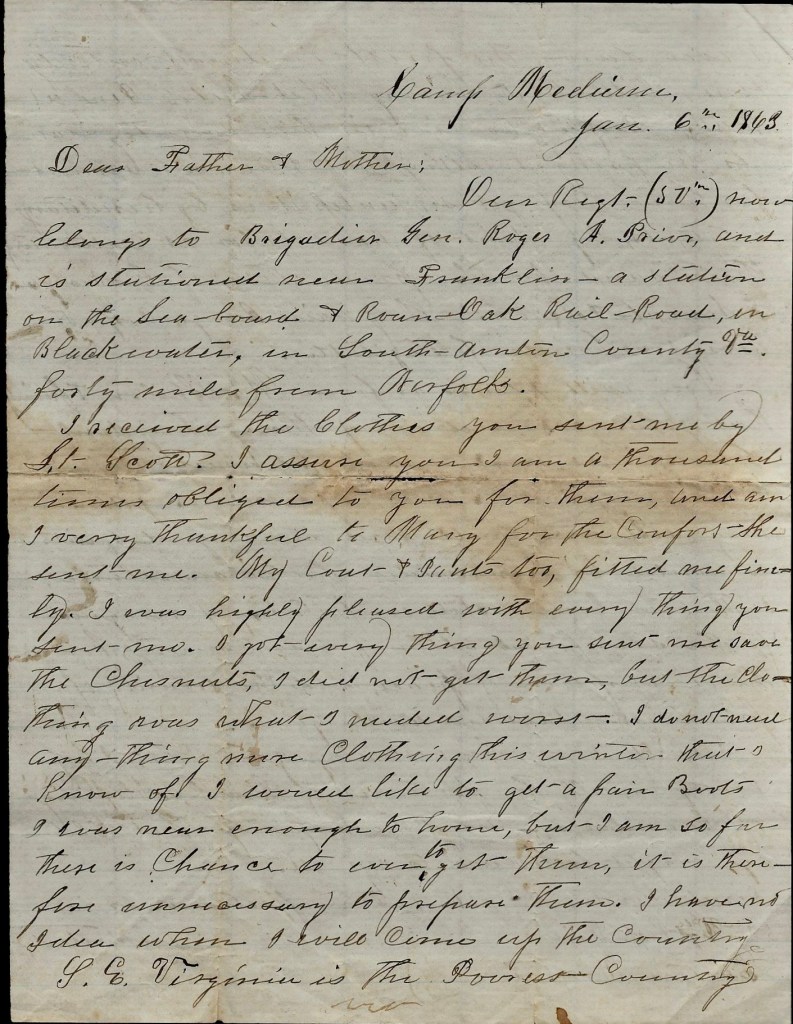 Camp Mediern,
Jan. 6th 1863.
Dear Father & Mother;
Our Regt. (50th) now
belongs to Brigadier Gen. Roger A. Prior, and
is stationed near Franklin – a station
on the Sea-board & Roan-Oak Rail-Road, in
Blackwater, in South-amton County Va.
forty miles from Norfolk.
I received the Clothes you sent me by
Lt. Scott. I assure you I am a thousand
times obliged to you for them, and am
I verry thankful to Mary for the Confort she
sent me. My Coat & Pants too, fitted me fine-
ly. I was highly pleased with every thing you
sent me. I got every thing you sent me save
the Chesnuts, I did not get them, but the clo-
thing was what I needed worst. I do not need
any-thing more Clothing this winter that I
Know of. I would like to get a pair Boots
I was near enough to home, but I am so far
there is Chance to ever to get them, it is there-
fore unnecessary to prepare them. I have no
Idea when I will Come up the Country
S. E. Virginia is the Poorest Country